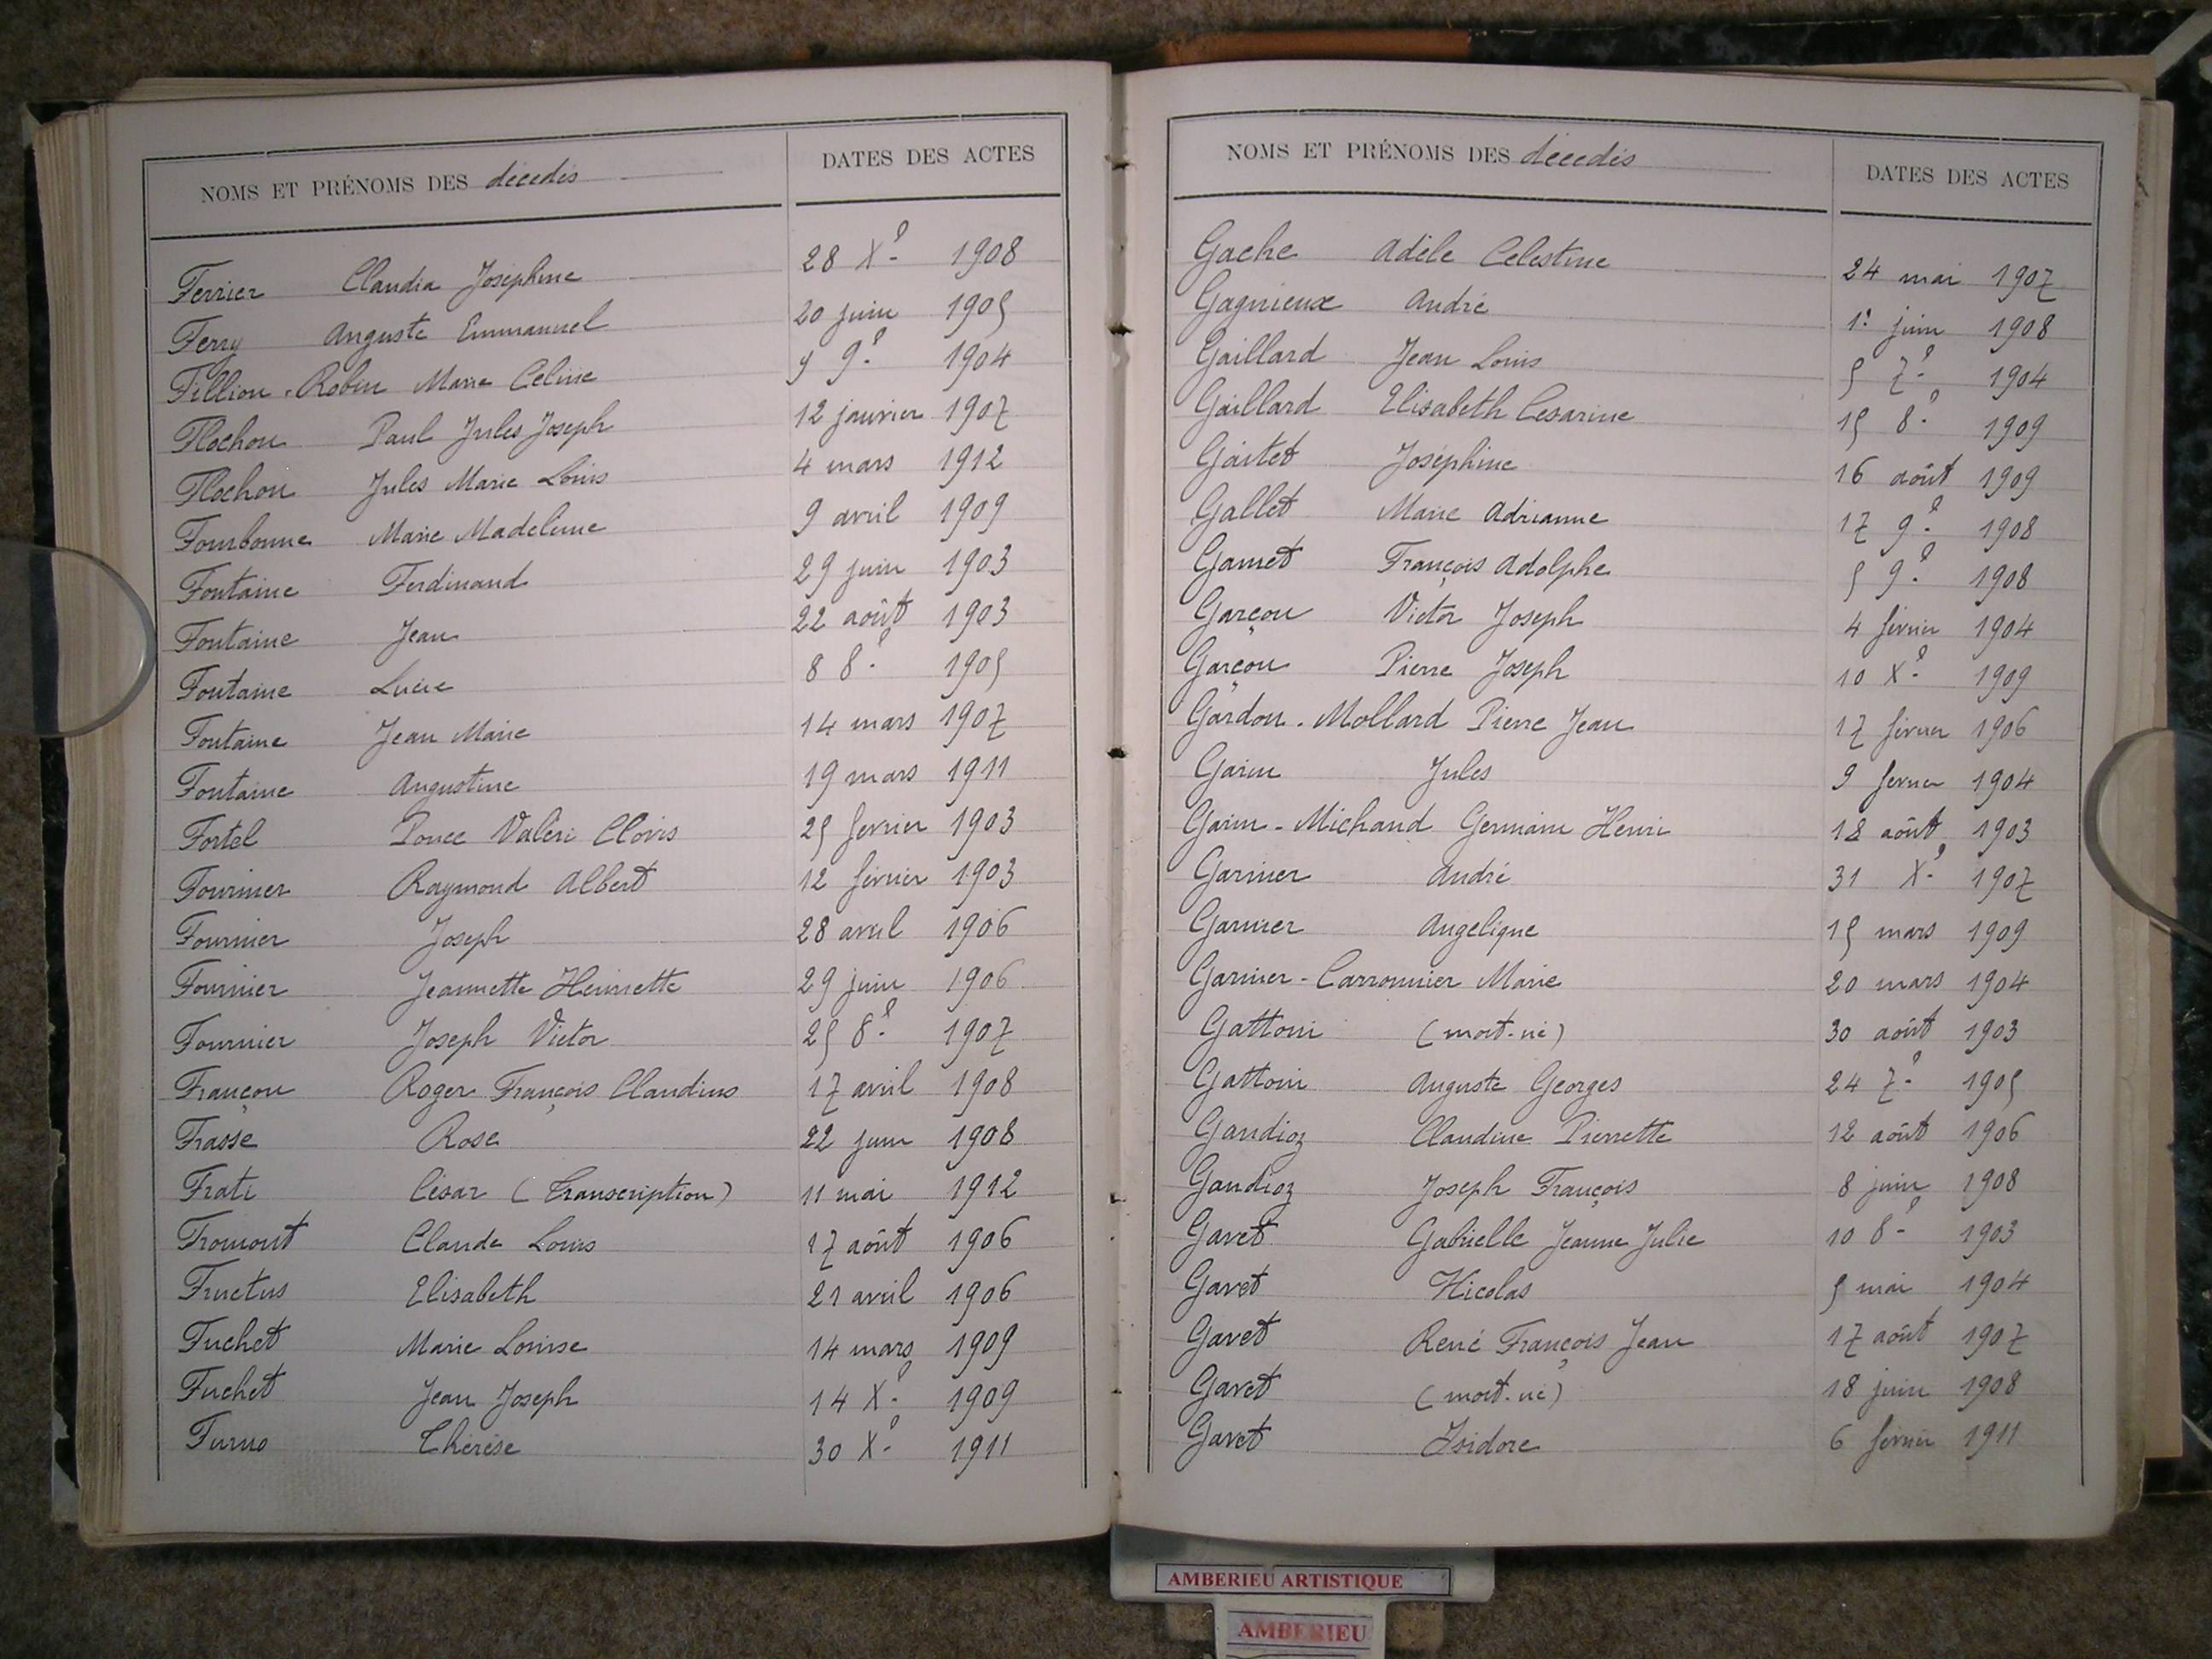 NOMS ET PRÉNOMS DES décédés DATES DES ACTES
Ferrier Claudia Joséphine 28 Xe 1908
Ferry Auguste Emmanuel 20 juin 1905
Fillion-Robin Marie Celine 9e 1904
Flochon Paul Jules Joseph 12 janvier 1907
Flochon Jules Marie Louis 4 mars 1912
Fourbonne Marie Madeleine 9 avril 1909
Fontaine Ferdinand 29 juin 1903
Fontaine Jean 22 août 1903
Fontaine Lucie 8 8e 1905
Fontaine Jean Marie 14 mars 1907
Fontaine Augustine 19 mars 1911
Fortel Ponce Valéri Clovis 25 fevrier 1903
Fournier Raymond Albert 12 février 1903
Fournier Joseph 28 avril 1906
Fournier Jeannette Henriette 29 juin 1906
Fournier Joseph Victor 25 8e 1907
Françon Roger François Claudius 17 avril 1908
Frasse Rose 22 juin 1908
Frati César (Transcription) 11 mai 1912
Fromont Claude Louis 17 août 1906
Fructus Elisabeth 21 avril 1906
Fuchet Marie Louise 14 mars 1909
Fuchet Jean Joseph 14 Xe 1909
Furno Thérèse 30 Xe 1911
NOMS ET PRÉNOMS DES décédés DATES DES ACTES
Gache Adèle Celestine 24 mai 1907
Gagnieux André 1er juin 1908
Gaillard Jean Louis 5 7e 1904
Gaillard Elisabeth Cesarine 15 8e 1909
Gaitet Joséphine 16 août 1909
Gallet Marie Adrianne 17 9e 1908
Gamet François Adolphe 5 9e 1908
Garçon Victor Joseph 4 février 1904
Garçon Pierre Joseph 10 Xe 1909
Gardon-Mollard Pierre Jean 17 février 1906
Garin Jules 9 fevrier 1904
Garin-Michaud Germain Henri 18 août 1903
Garnier André 31 Xe 1907
Garnier Angelique 15 mars 1909
Garnier-Carronnier Marie 20 mars 1904
Gattoni (mort-né) 30 août 1903
Gattoni Auguste Georges 24 7e 1905
Gaudioz Claudine Pierrette 12 août 1906
Gaudioz Joseph François 8 juin 1908
Gavet Gabrielle Jeanne Julie 10 8e 1903
Gavet Nicolas 5 mai 1904
Gavet René François Jean 17 août 1907
Gavet (mort-né) 18 juin 1908
Gavet Isidore 6 février 1911
AMBERIEU ARTISTIQUE
AMBERIEU